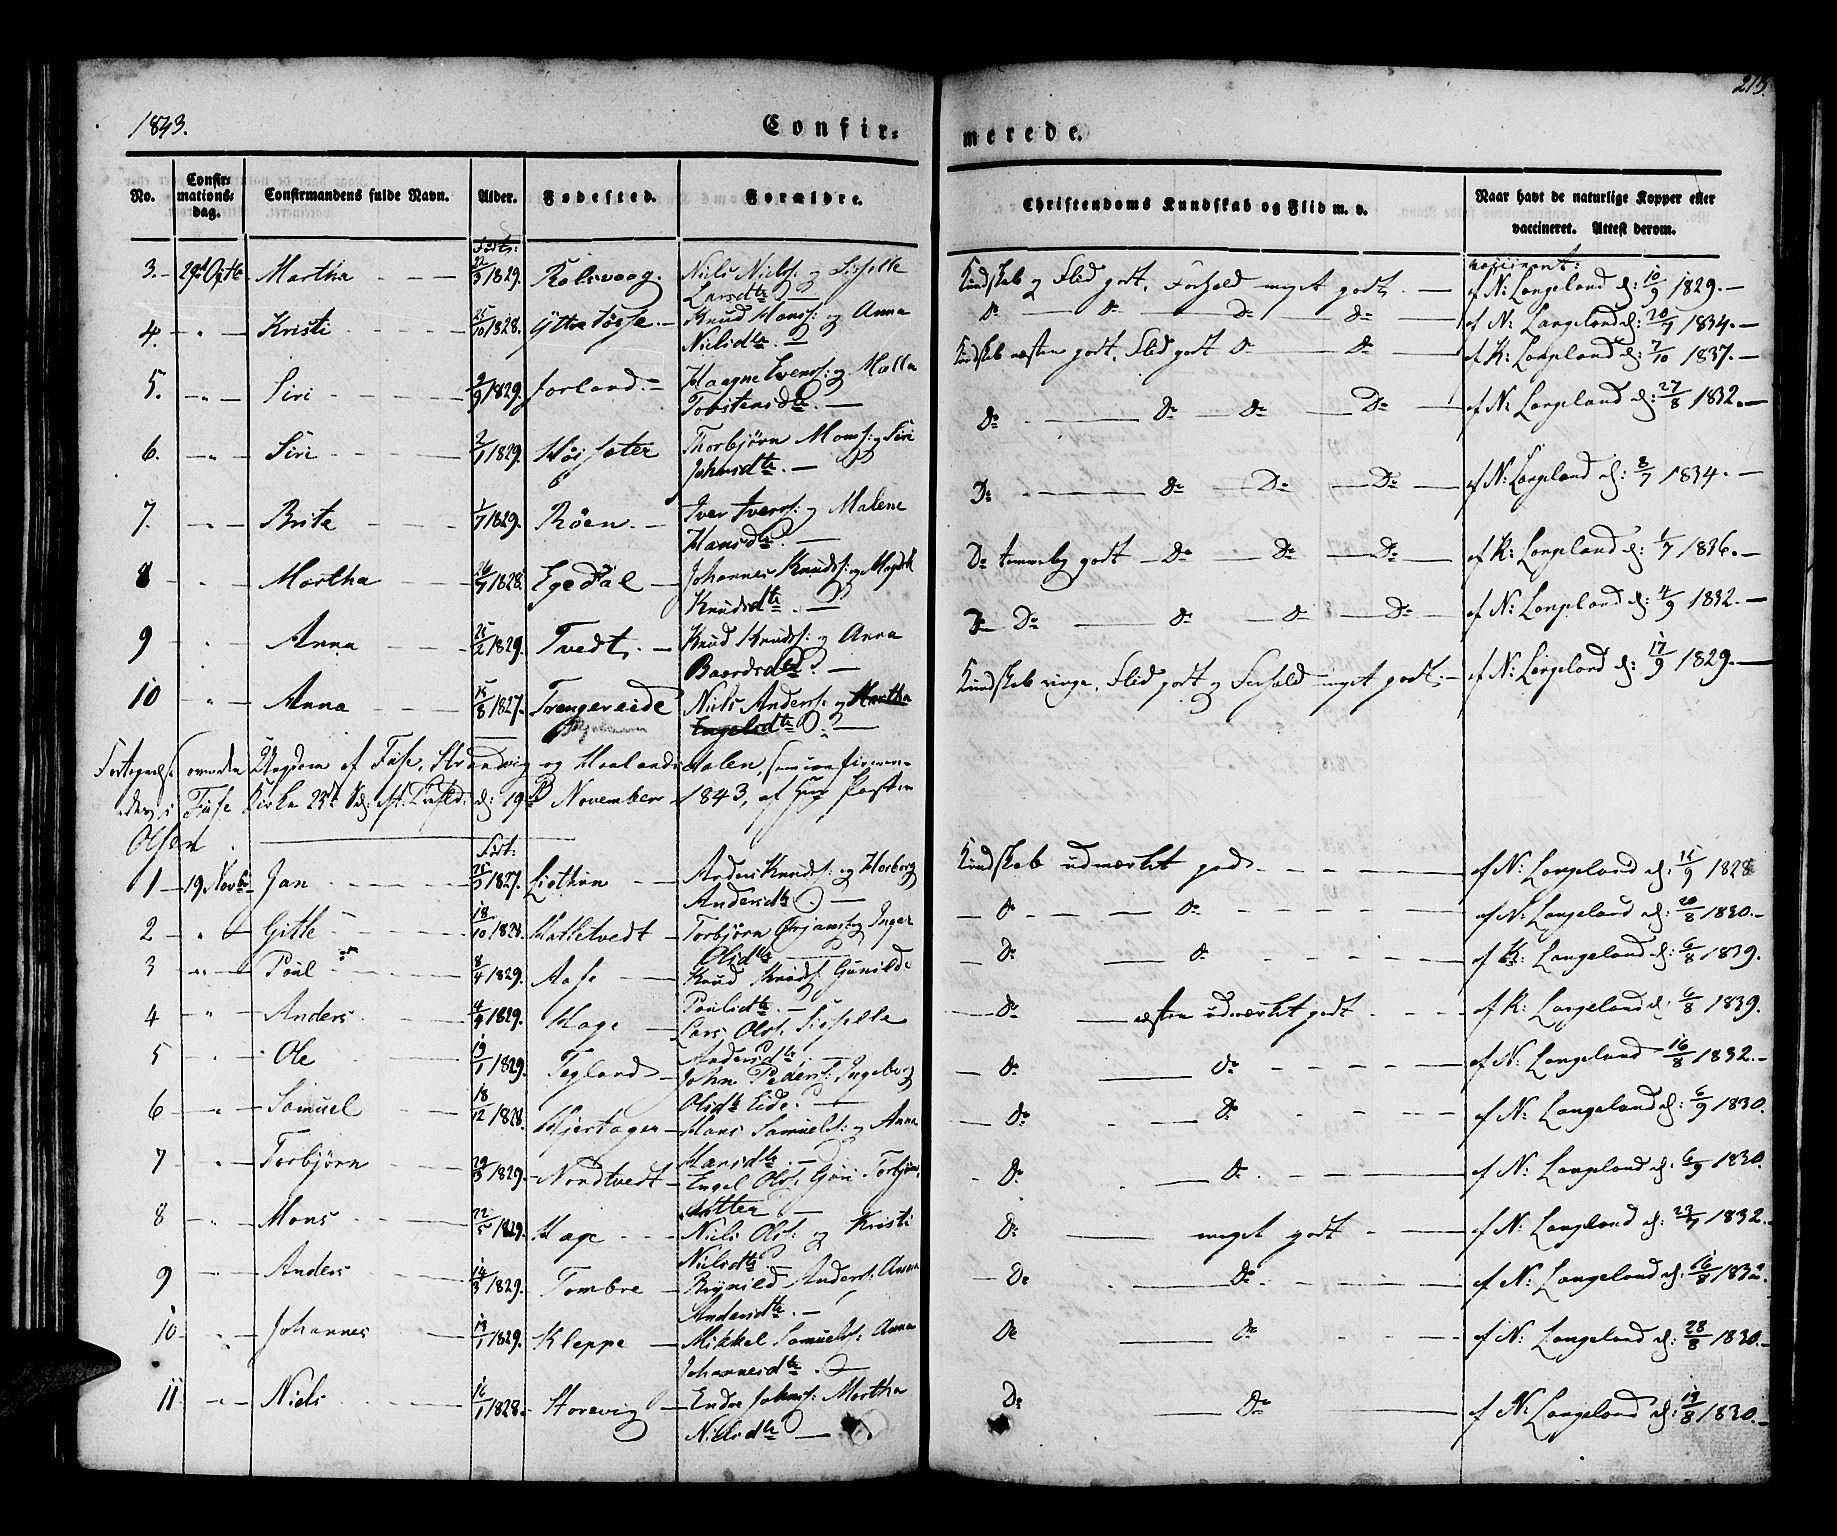 1843.
Confir=
merede.
215.
No.
Confir-
mations-
dag.
Confirmandens fulde Navn.
Alder.
Fødested.
Forældre.
Christendoms Kundskab og Flid m. v.
Naar havt de naturlige Kopper eller
vaccineret. Attest derom.
Født:
vaccineret:
3. 29d Octbr Martha 22/3 1829. Rolsvaag. Niels Niels: og Sisselle
Larsdtr. Kundskab og Flid godt, Forhold meget godt. af N: Langeland d: 10/9 1829.
4. " Kristi 25/10 1828. Yttre Tøsse. Knud Hans: og Anna
Nielsdtr. Do Do Do Do af N: Langeland d: 20/7 1834.
5. " Siri 9/9 1829. Jorland. Haagne Ivers: og Malla
Torstensdtr. Kundskab næsten godt, Flid godt Do Do af K: Langeland d: 7/10 1837.
6. " Siri 2/7 1829. Høisæter Thorbjørn Mons: og Siri
Johnsdtr. Do Do Do Do af N: Langeland d: 27/8 1832.
7. " Brite 1/7 1829. Røen. Iver Ivers: og Malene
Hansdtr. Do Do Do Do af N: Langeland d: 8/7 1834.
8 " Martha 26/7 1828. Egedal Johannes Knuds: og Magdele
Knudsdtr. Do temmelig godt Do Do Do af K: Langeland d: 1/7 1836.
9 " Anna 25/2 1829. Tvedt. Knud Knuds: og Anna
Baardsdtr. Do Do Do Do Do af N: Langeland d: 4/9 1832.
10 " Anna 15/8 1827. Trengereide Niels Anders: og Martha
Engelsdtr. Kundskab ringe, Flid godt og Forhold meget godt. af N: Langeland d: 17/9 1829.
Fortegnelse over den Ungdom af Fuse, Strandvig og Haalandsdalen, som confirmeredes
i Fuse Kirke 23de S: eft: Trefold: d: 19de November 1843, af Hr Pastor
Olsen.
Født:
1 19 Novbr Jan 25/5 1827. Liothun Anders Knuds: og Herborg
Andersdtr. Kundskab udmærket godt. af N: Langeland d: 15/9 1828
2 " Gitle 18/10 1828. Hatletvedt Torbjørn Ørjans: og Inger
Olsdtr. Do Do af N: Langeland d: 20/8 1830.
3 " Poul 8/4 1829. Aase Knud Knuds: Gunilde
Poulsdtr. Do Do af K: Langeland d: 6/8 1839.
4 " Anders 4/4 1829. Hage Lars Ols: Sisselle
Andersdtr. Do næsten udmærket godt af K: Langeland d: 6/8 1839.
5 " Ole 19/1 1829. Tegland John Peders: Ingeborg
Olsdtr Eide. Do Do af N: Langeland 16/8 1832.
6 " Samuel 18/12 1828. Hjertager Hans Samuels: og Anna
Hansdtr. Do Do af N: Langeland d: 6/9 1830.
7 " Torbjørn 29/3 1829. Nordtvedt Engel Ols: Guri Torbjørns
datter. Do Do af N: Langeland d: 6/9 1830.
8 " Mons 22/5 1829. Hage Niels Ols: og Kristi
Nielsdtr. Do meget godt af N: Langeland d: 23/7 1832.
9 " Anders 14/3 1829. Tombre Brynild Anders: Anna
Andersdtr. Do Do af N: Langeland d: 16/8 1832.
10 " Johannes 13/1 1829. Kleppe Mikkel Samuels: Anna
Johannesdtr. Do Do af N: Langeland d: 28/8 1830.
11 " Niels 16/1 1828. Storevig Endre Johns: Martha
Nielsdtr. Do Do af N: Langeland d: 19/8 1830.